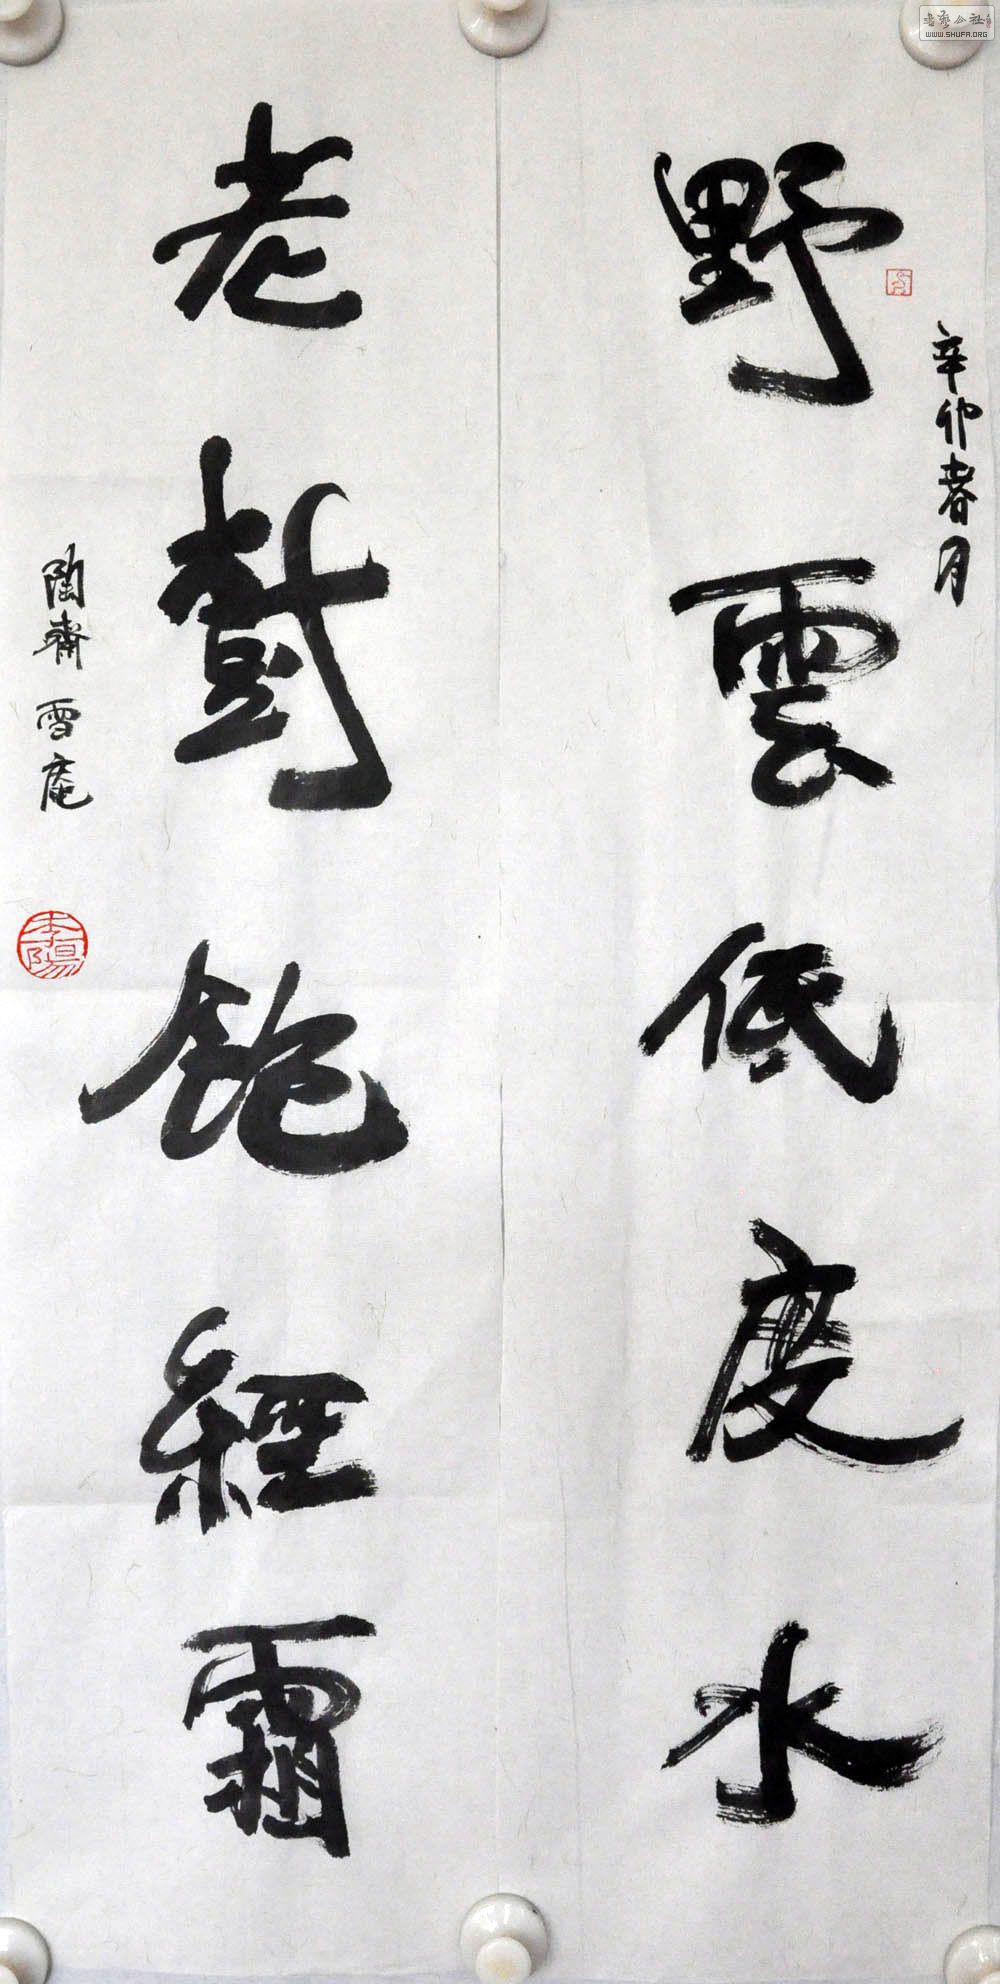 野雲低度水
老樹飽經霜
辛卯春月
陶齋雪庵
李陽
書藝公社
WWW.SHUFA.ORG